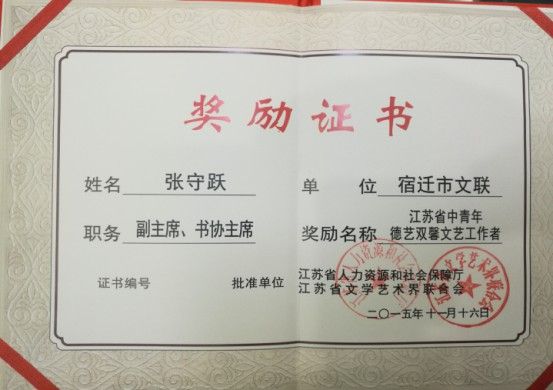 奖励证书
姓名 张守跃 单位 宿迁市文联
职务 副主席、书协主席 奖励名称 江苏省中青年
德艺双馨文艺工作者
证书编号 批准单位 江苏省人力资源和社会保障厅
江苏省文学艺术界联合会
二〇一五年十一月十六日